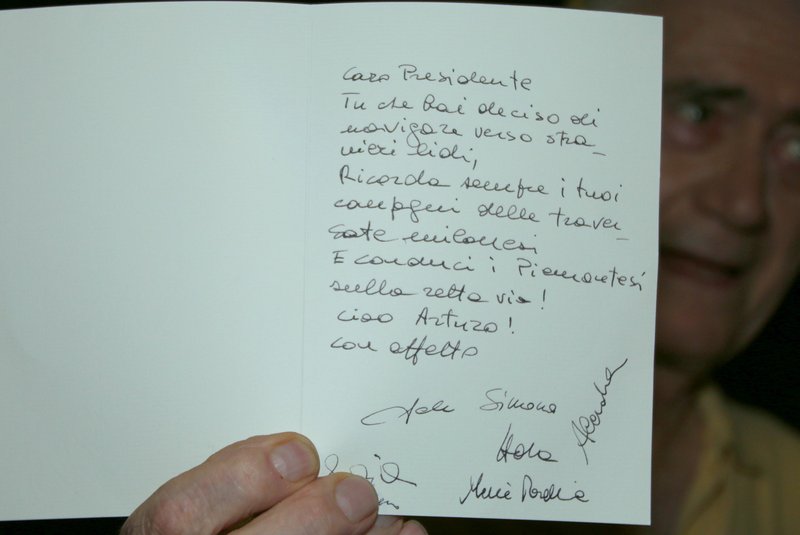 Caro Presidente
Tu che hai deciso di
navigare verso stra-
nieri lidi,
Ricorda sempre i tuoi
compagni delle traver-
sate milanesi
E conduci i Piemontesi
sulla retta via!
ciao Arturo!
con affetto
Simona